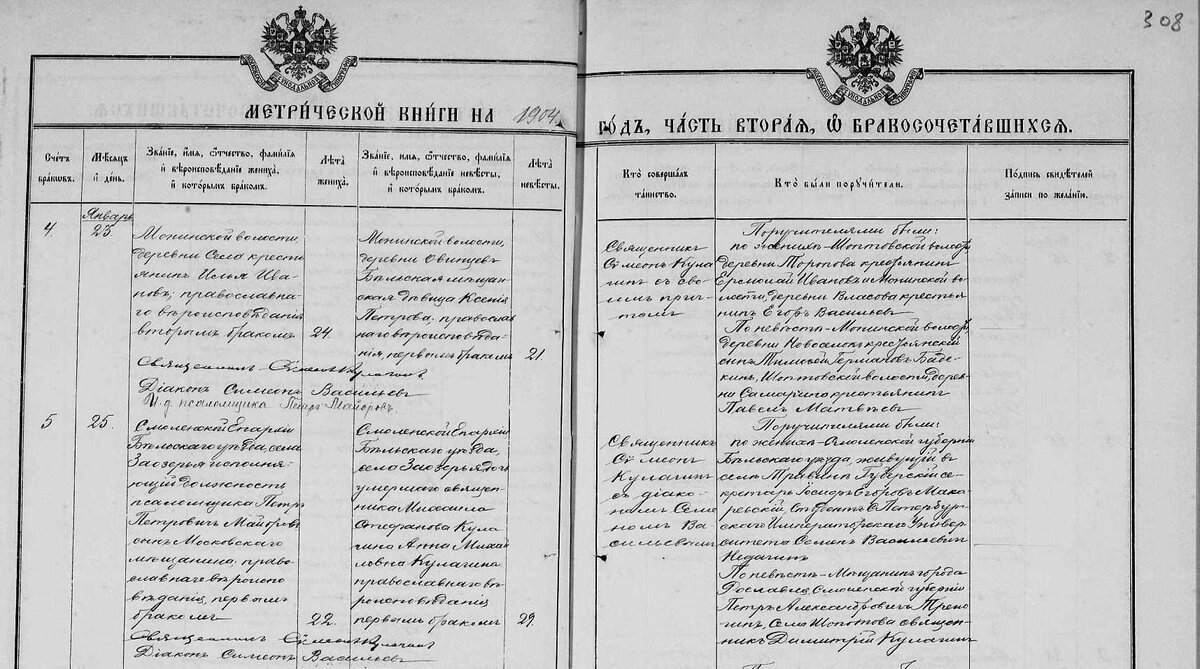 308
Метри́ческой кни́ги на 1904
го́дъ, ча́сть втора́я, ѿ бракосочета́вшихсѧ.
Сче́тъ
бра́ковъ.
Мѣ́сяцъ
и день.
Зва́ніе, и́мя, ѻ́тчество, фами́лія
и вѣроисповѣ́даніе жениха́,
и кото́рымъ бра́комъ.
Лѣ́та
жениха́.
Зва́ніе, и́мя, ѻ́тчество, фами́лія
и вѣроисповѣ́даніе невѣ́сты,
и кото́рымъ бра́комъ.
Лѣ́та
невѣ́сты.
Кто̀ соверша́лъ
та́инство.
Кто̀ бы́ли поручи́тели.
По́дпись свидѣ́телей
за́писи по жела́нію.
4.
Январь
23.
Монинской волости,
деревни Села кресть
янинъ Илья Ива
новъ; православна
го вѣроисповѣданія
вторымъ бракомъ
24.
Монинской волости,
деревни Овинцев
Бѣльская мѣщан
ская дѣвица Ксенія
Петрова, православ
наго вѣроисповѣда
нія, первымъ бракомъ
21.
Священникъ Симеонъ Кулагинъ
Діаконъ Симеонъ Васильевъ
И. д. псаломщика Петръ Майоровъ
Священникъ
Сѵмеонъ Кула
гинъ съ сво
имъ прич
томъ
Поручителями были:
по женихѣ - Шоптовской волости
деревни Торопова крестьянинъ
Ермолай Ивановъ и Монинской во
лости, деревни Власова крестья
нинъ Егоръ Васильевъ
По невѣстѣ - Монинской волости
деревни Новоселокъ крестьянскій
сынъ Тимофей Германовъ
Шоптовской волости, дерев
ни Самарино крестьянинъ
Павелъ Матвѣевъ
5
25.
Смоленской Епархіи
Бѣльскаго уѣзда, села
Заозерья исполня-
ющій должность
псаломщика Петръ
Петровичъ Майоровъ
сынъ Московскаго
мѣщанина; право
славнаго вѣроиспо
вѣданія, первымъ
бракомъ
22.
Смоленской Епархіи
Бѣльскаго уѣзда,
села Заозерья дочь
умершаго священ
ника Михаила
Стефанова Кула
гина Анна Михай
ловна Кулагина
православнаго вѣ
роисповѣданія
первымъ бракомъ
29.
Священникъ Симеонъ Кулагинъ
Діаконъ Симеонъ Васильевъ
Священникъ
Сѵмеонъ
Кулагинъ
съ діако-
номъ Симе
ономъ Ва
сильевымъ
Поручителями были:
по женихѣ - Смоленской губерніи
Бѣльскаго уѣзда, живущій въ
селѣ Губернскій се-
кретарь Іосифъ Егоровъ Мака
ревскій, Студентъ С. Петербур-
скаго Императорскаго Универ
ситета Семенъ Васильевичъ
По невѣстѣ - Мѣщанинъ города
Рославля, Смоленской губерніи
Петръ Александровичъ
села Шоптова священ
никъ Димитрій Кулагинъ